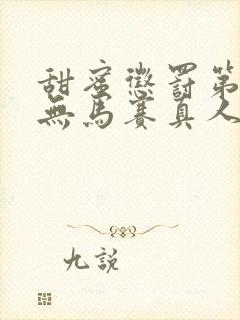 甜蜜懲罰第
無馬賽真人
九說